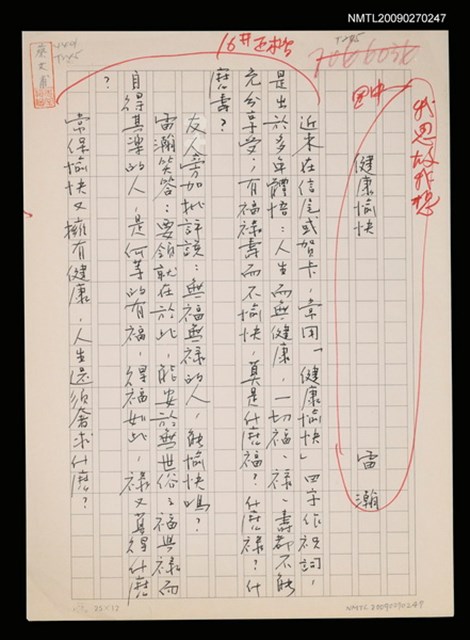 NMTL20090270247
16井正松
我思故我想
健康愉快
雷瀚
近來在信尾或賀卡，常用「健康愉快」四字作祝詞，
是出於多年體悟：人生而無健康，一切福、祿、壽都不能
充分享受；有福祿壽而不愉快，算是什麼福？什麼祿？什
麼壽？
友人旁加批評談：無福無祿的人，能愉快嗎？
雷瀚笑答：要領就在於此，能安於無世俗之福與祿而
自得其樂的人，是何等的有福，得福如此，祿又算得什麼
？
常保愉快又擁有健康，人生還須奢求什麼？
25×12
NMTL20090270247